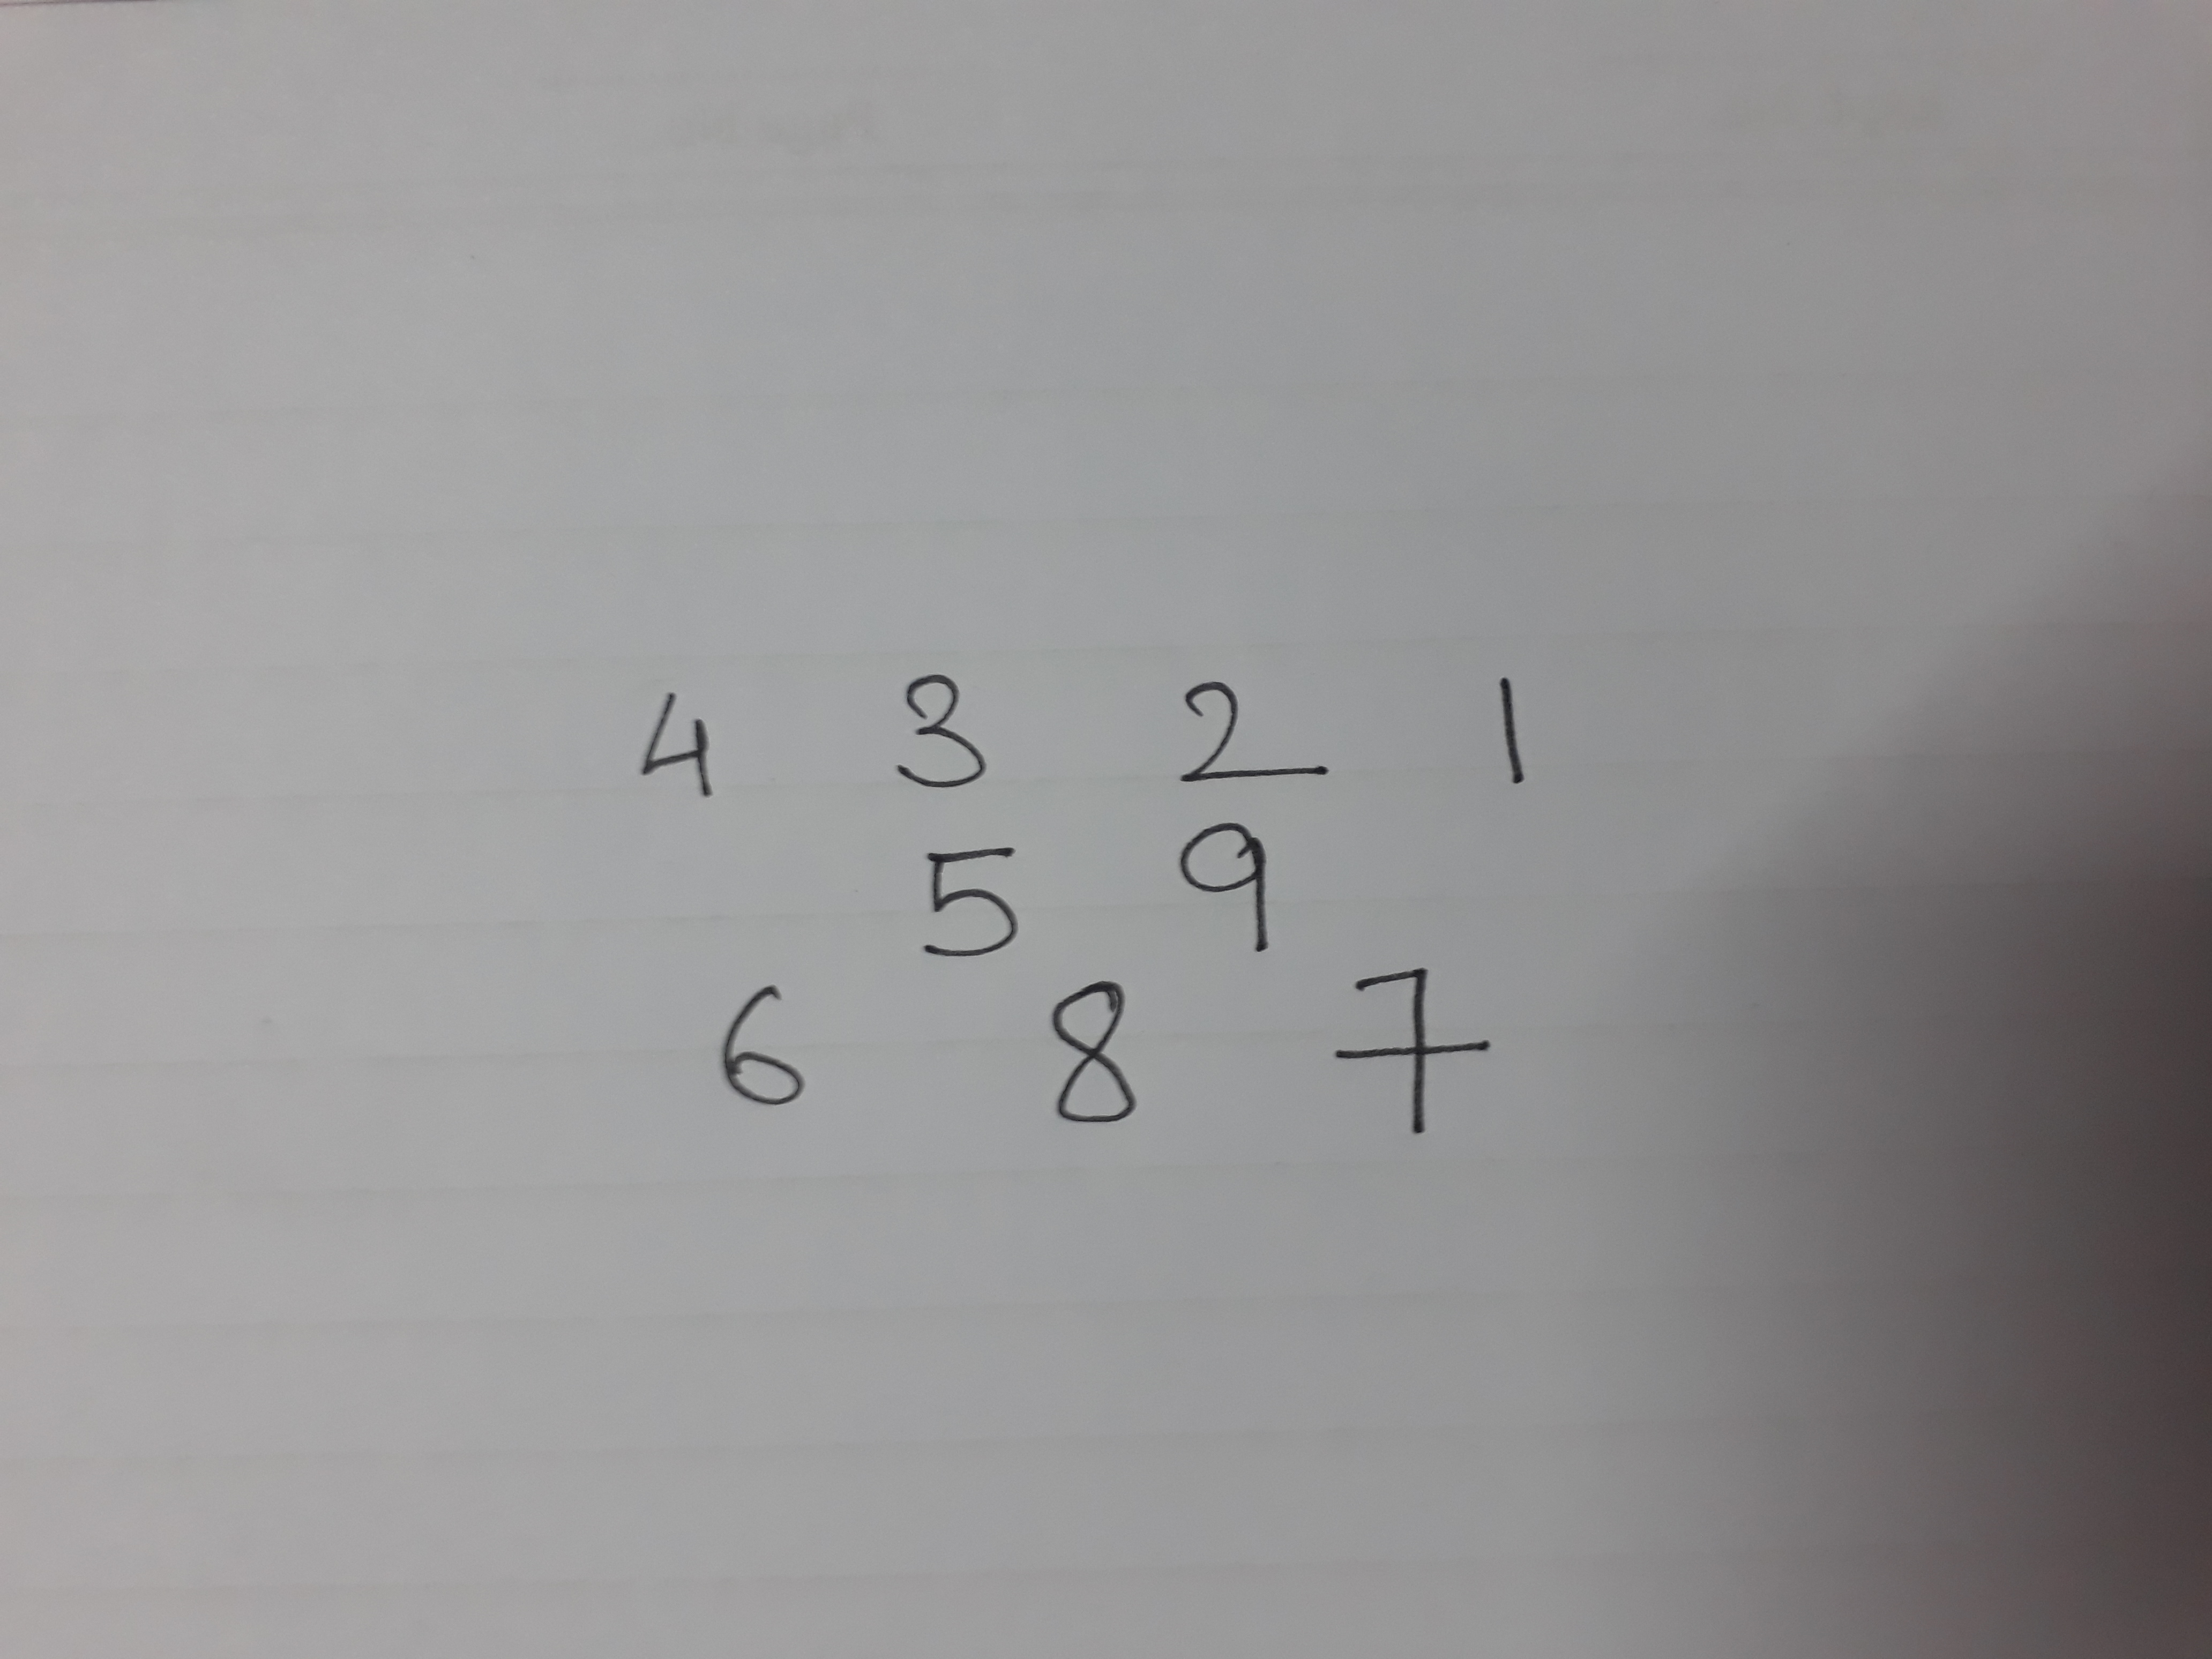 4 3 2 1
5 9
6 8 7